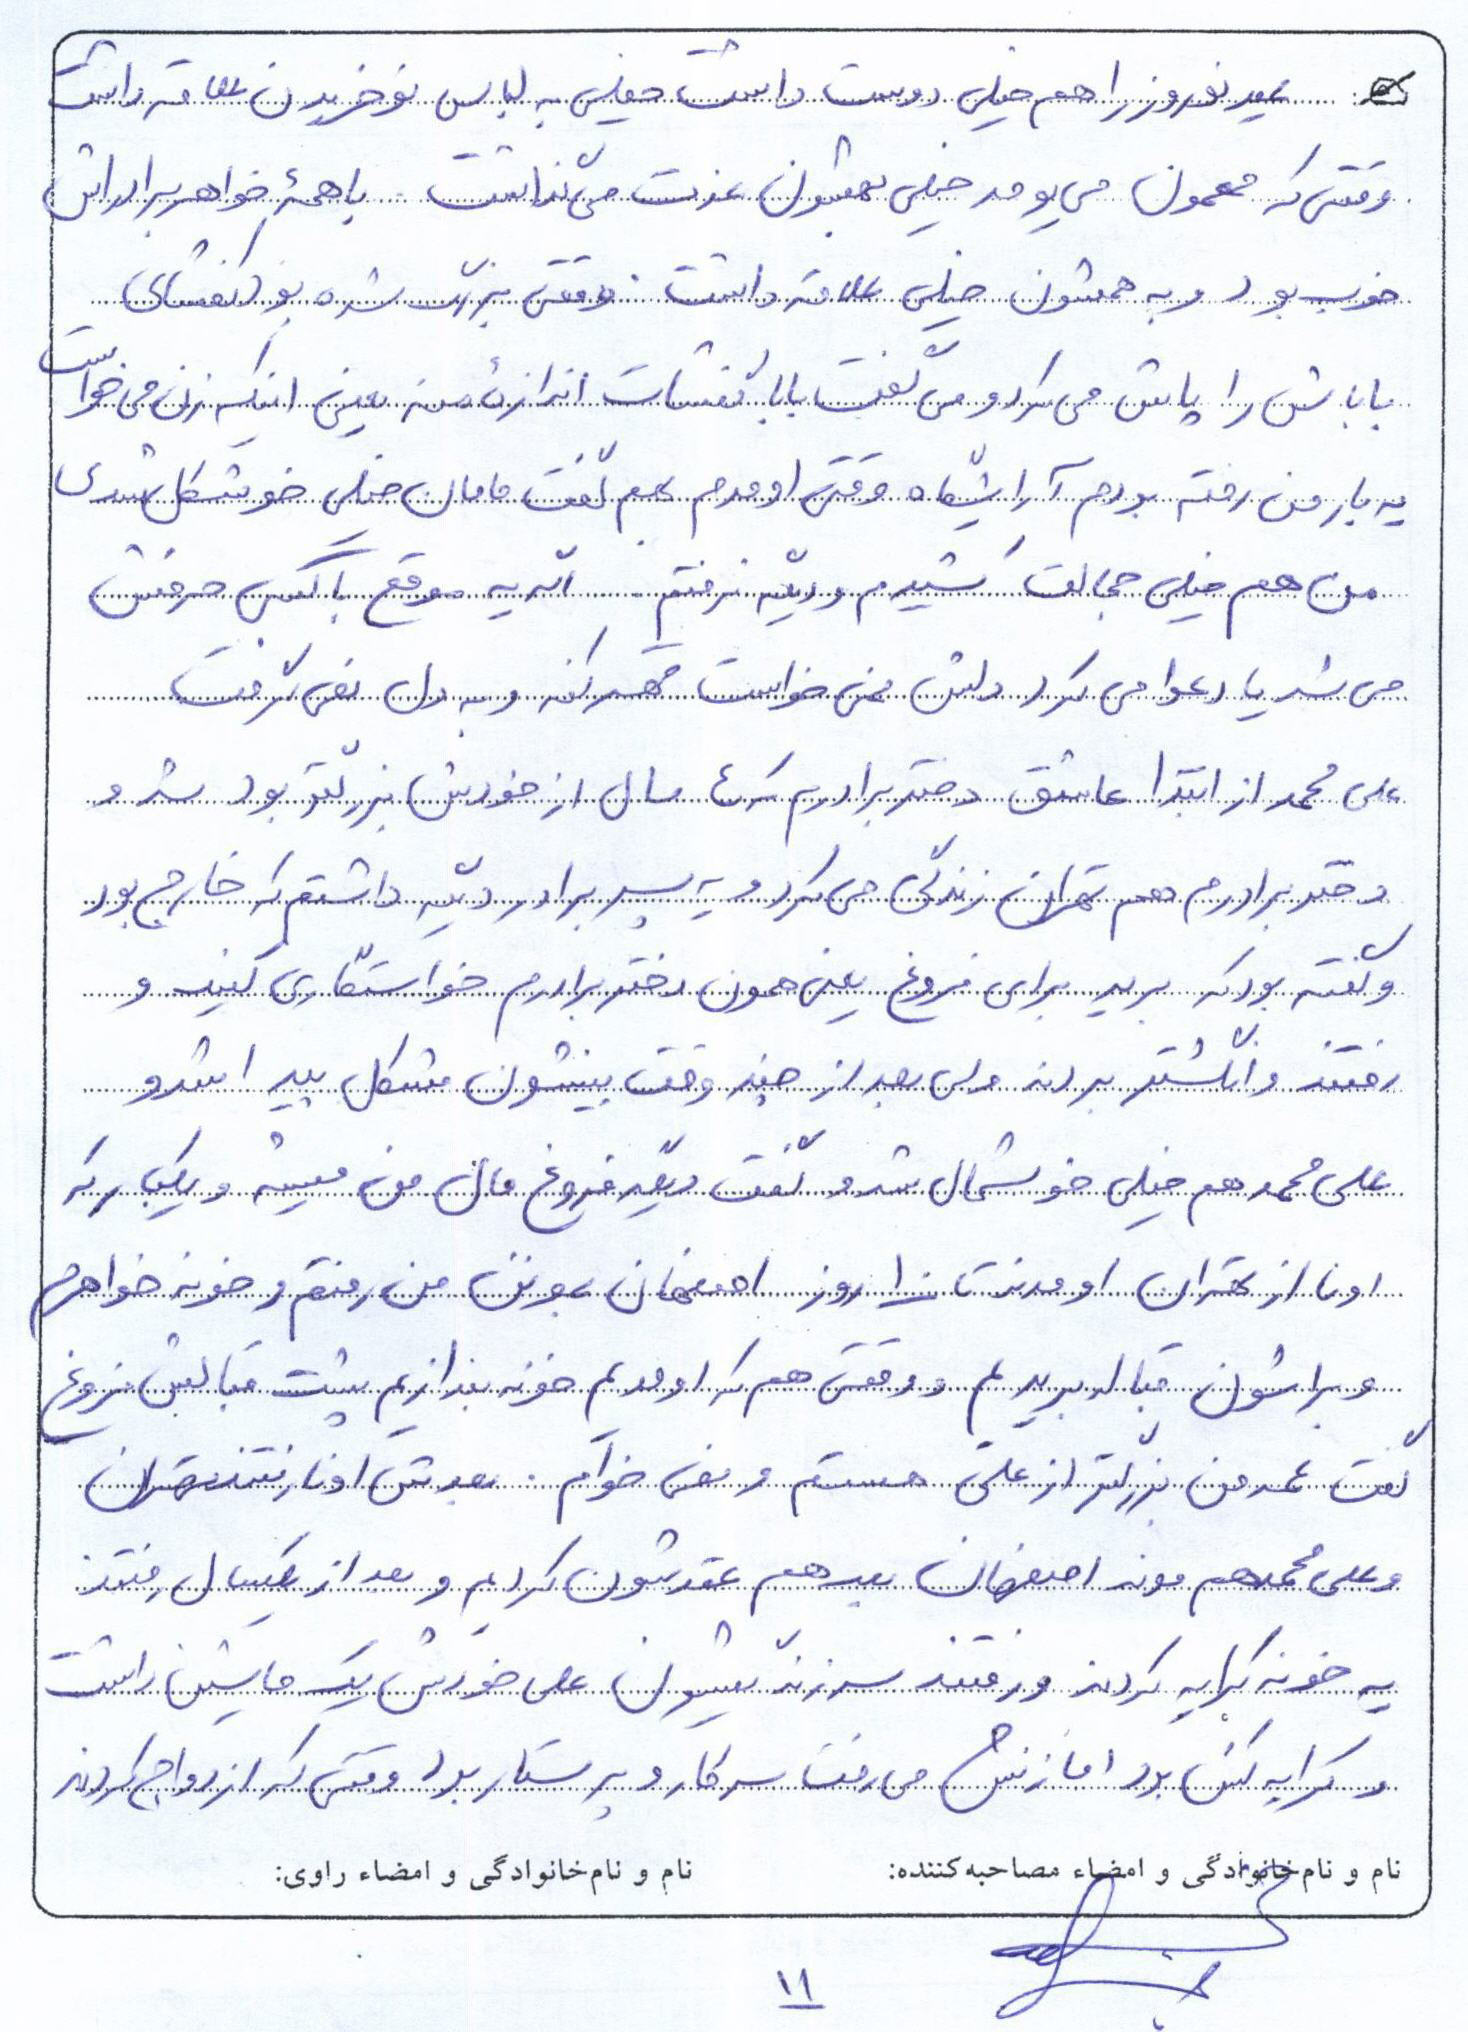 عید نوروز را هم خیلی دوست داشت خیلی به لباس نو خریدن علاقه داشت
وقتی که مهمون می یومد خیلی بهشون عزت می گذاشت . با همهٔ خواهر برادراش
خوب بود و به همشون خیلی علاقه داشت . وقتی بزرگ شده بود کفشای
باباش را پاش می کرد و می گفت بابا کفشات اندازهٔ منه یعنی اینکه زن می خواست
یه بار من رفته بودم آرایشگاه وقتی اومدم بهم گفت مامان خیلی خوشگل شدی
من هم خیلی خجالت کشیدم و دیگه نرفتم . اگه یه موقع با کسی حرفش
می شد یا دعوا می کرد دلش نمی خواست قهر کنه و به دل نمی گرفت
علی محمد از ابتدا عاشق دختر برادرم که ٤ سال از خودش بزرگتر بود شد و
دختر برادرم هم تهران زندگی می کرد و یه پسر برادر دیگه داشتم که خارج بود
و گفته بود که برید برای فروغ یعنی همون دختر برادرم خواستگاری کنید و
رفتند و انگشتر بردند ولی بعد از چند وقت بینشون مشکل پیدا شد و
علی محمد هم خیلی خوشحال شد و گفت دیگه فروغ مال من میشه و یکبار که
اونا از تهران اومدند تا ١٠ روز اصفهان بمونن من رفتم و خونه خواهرم
و براشون قباله بریدیم و وقتی هم که اومدیم خونه بندازیم پشت قبالش فروغ
گفت عمه من بزرگتر از علی هستم و نمی خوام . بعدش اونا رفتند تهران
و علی محمد هم موند اصفهان بعد هم عقدشون کردیم و بعد از یکسال رفتند
یه خونه کرایه کردند و رفتند سر زندگیشون علی خودش یک ماشین داشت
و کرایه کش بود اما زنش می رفت سر کار و پرستار بود وقتی که ازدواج کردند
نام و نام‌خانوادگی و امضاء مصاحبه‌کننده: نام و نام‌خانوادگی و امضاء راوی:
١١